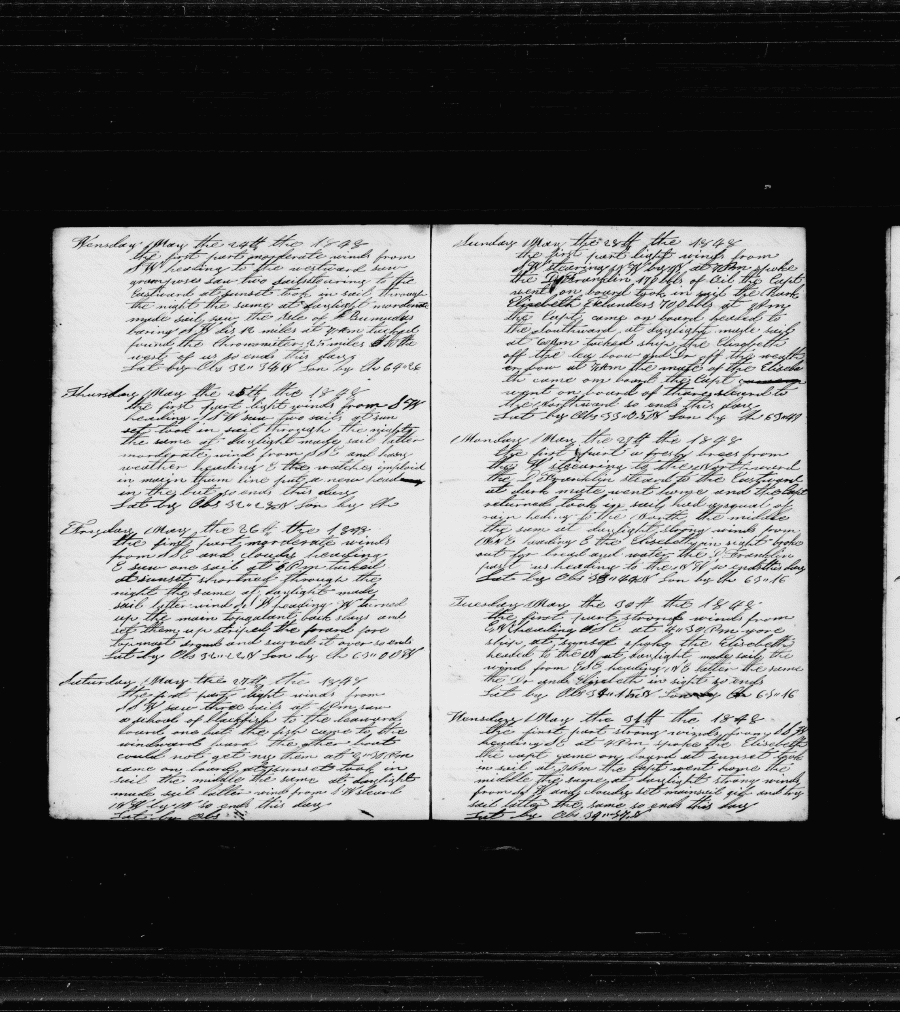 Wensday May the 24th the 1848
the first part moderate winds from
SW heading to the westward sun
saw two sail stearing to the
Eastward at sunset took in sail through
the night the same at daylight moderate
made sail saw the Isle of Bermudas
baring NW dis 12 miles at 7 Am tacked
found the chronometer 25 miles to the
west of us so ends this day
Lat by Obs 32"34N Lon by Ch 64"26
Thursday May the 25th the 1848
the first part light winds from SSW
heading saw two sail at sun
set took in sail through the night
the same at daylight made sail latter
morderate wind from SSE and hasy
weather heading E the watches imploid
in main turn line put a new head
in the but so ends this day
Lat by Obs 32"28N Lon by Ch
May the 26th the 1848
the first part morderate winds
from SSE and cloudy heading
E saw one sail at 6 Pm tacked
at sunset shortned through the
night the same at daylight made
sail latter wind S W heading W turned
up the main topgalant back stays and
set them up striped the forard fore
topmast and sarved it over so ends
Lat by Obs 32"22N Lon by Ch 63"00W
Saturday May the 27th the 1848
the first part light winds from
SSW saw three sails at 1 Pm saw
a school of blackfish to the leaward
lowed one but the fish came to the
windward the other boat
could not get ny them at 2"30 Pm
came on board at sunset took in
sail the middle the same at daylight
made sail latter wind from SW steard
NW by W so ends this day
Lat by Obs
Sunday May the 28th the 1848
the first part light winds from
SW stearing NW by W at Pm spoke
the D Franklin bbls of Oil the Capt
went on board took in the Bark
Elisabeth Edwards 700 bbls at Pm
the Capt came on board headed to
the southward at daylight made sail
at 6 Am tacked ship the Elisabeth
off the ley bow and Dr off the weather
bow at Am the mate of the Elisabe
th came om board the Capt
wynt on board of them steard to
the northward so ends this day
Lat by Obs 33"05N Lon by Ch 63"49
Monday May the 29th the 1848
the first part a fresh brees from
the W stearing to the Northward
the D Franklin steard to the Eastward
at dark mate went home and the Capt
returned took in sail had a squal of
rain heding to the North the middle
the same at daylight strong winds from
heading E the Elisabeth in sight broke
out for bread and water the D Franklin
past us heading to the NW so ends this day
Lat by Obs N Lon by Ch 63"16
Tuesday May the 30th the 1848
the first part strong winds from
heading SSE at 4"30 Pm wore
ship at sunset spoke the Elisabeth
headed to the W at daylight made sail the
wind from ESE heading NE latter the same
the Dr and Elisabeth in sight so ends
Lat by Obs N Lon by Ch 63"16
Wensday May the 31th the 1848
the first part strong winds from SSW
heading SE at 4 Pm spoke the Elisabeth
the capt came on board at sunset took
in sail at Pm the Capt went home the
middle the same at daylight strong winds
from SW and cloudy set mainsail gib and try
sail latter the same so ends this day
Lat by Obs